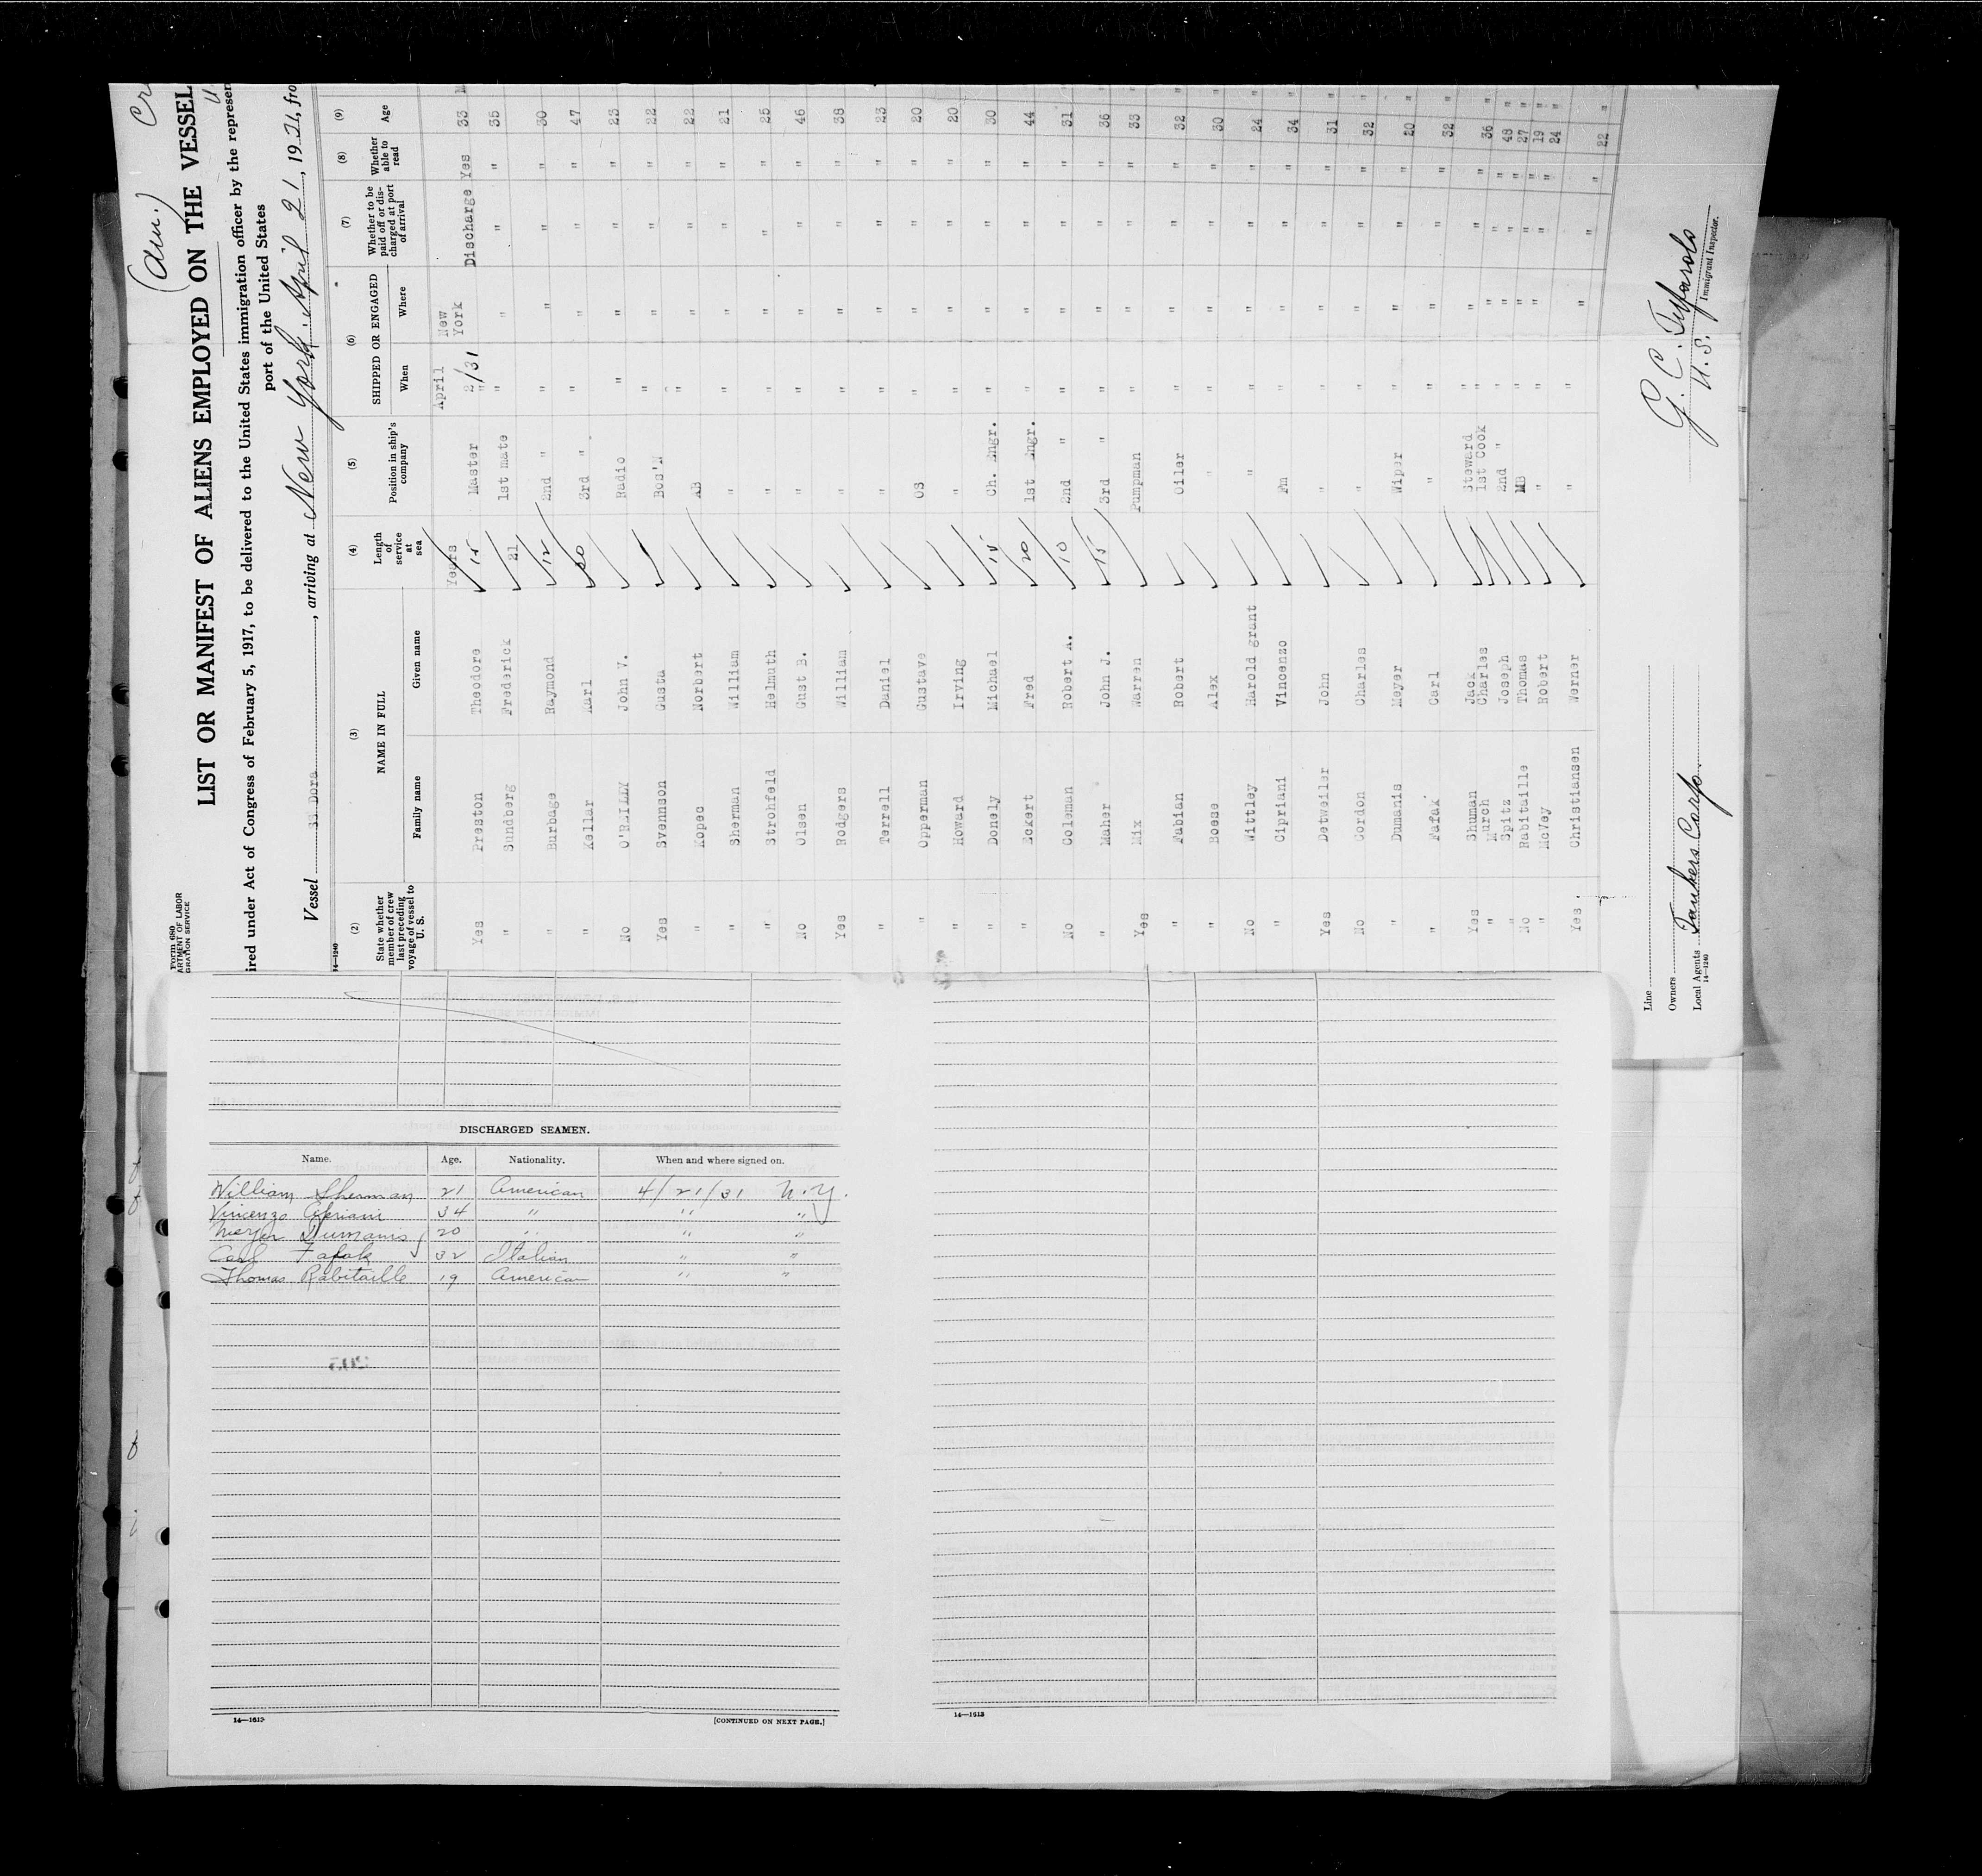 Form 680
ARTMENT OF LABOR
GRATION SERVICE
(Am.)
LIST OR MANIFEST OF ALIENS EMPLOYED ON THE VESSEL
ired under Act of Congress of February 5, 1917, to be delivered to the United States immigration officer by the represen
port of the United States
Vessel SS. Dora, arriving at New York April 21, 1931, fro
14—1240
(2) (3) (4) (5) (6) (7) (8) (9)
State whether member of crew last preceding voyage of vessel to U. S. NAME IN FULL Length of service at sea Position in ship's company SHIPPED OR ENGAGED Whether to be paid off or discharged at port of arrival Whether able to read Age
Family name Given name When Where
Years April New
Yes Preston Theodore 15 Master 2/31 York Discharge Yes 33
" Sundberg Frederick 21 1st mate " " " " 35
" Burbage Raymond 12 2nd " " " " " 30
" Kellar Karl 3rd " " " " " 47
No O'REILLY John V. Radio " " " " 23
Yes Svennson Gusta Bos'N " " " " 22
" Kopec Norbert AB " " " " 22
" Sherman William " " " " " 21
" Strohfeld Helmuth " " " " " 25
No Olsen Gust B. " " " " " 46
Yes Rodgers William " " " " " 38
" Terrell Daniel " " " " " 23
" Opperman Gustave OS " " " " 20
" Howard Irving " " " " " 20
" Donely Michael 15 Ch. Engr. " " " " 30
" Eckert Fred 20 1st Engr. " " " " 44
No Coleman Robert A. 10 2nd " " " " " 31
" Maher John J. 15 3rd " " " " " 36
Yes Mix Warren Pumpman " " " " 33
" Fabian Robert Oiler " " " " 32
" Boese Alex " " " " " 30
No Wittley Harold grant " " " " " 24
" Cipriani Vincenzo Fm " " " " 34
Yes Detweiler John " " " " " 31
No Gordon Charles " " " " " 32
" Dumanis Meyer Wiper " " " " 20
" Fafak Carl " " " " " 32
Yes Shuman Jack Steward " " " " 36
" Murch Charles 1st Cook " " " " 48
" Spitz Joseph 2nd " " " " " 27
No Rabitaille Thomas MB " " " " 19
" McVey Robert " " " " " 24
Yes Christiansen Werner " " " " " 22
Line
Owners
Local Agents Tankers Corp.
14—1240
U. S. Immigrant Inspector.
DISCHARGED SEAMEN.
Name. Age. Nationality. When and where signed on.
William Sherman 21 American 4/21/31 N.Y.
Vincenzo Cipriani 34 " " "
Meyer Dumanis 20 " " "
Carl Fafak 32 Italian " "
Thomas Rabitaille 19 American " "
14—1613 [CONTINUED ON NEXT PAGE.]
14—1613